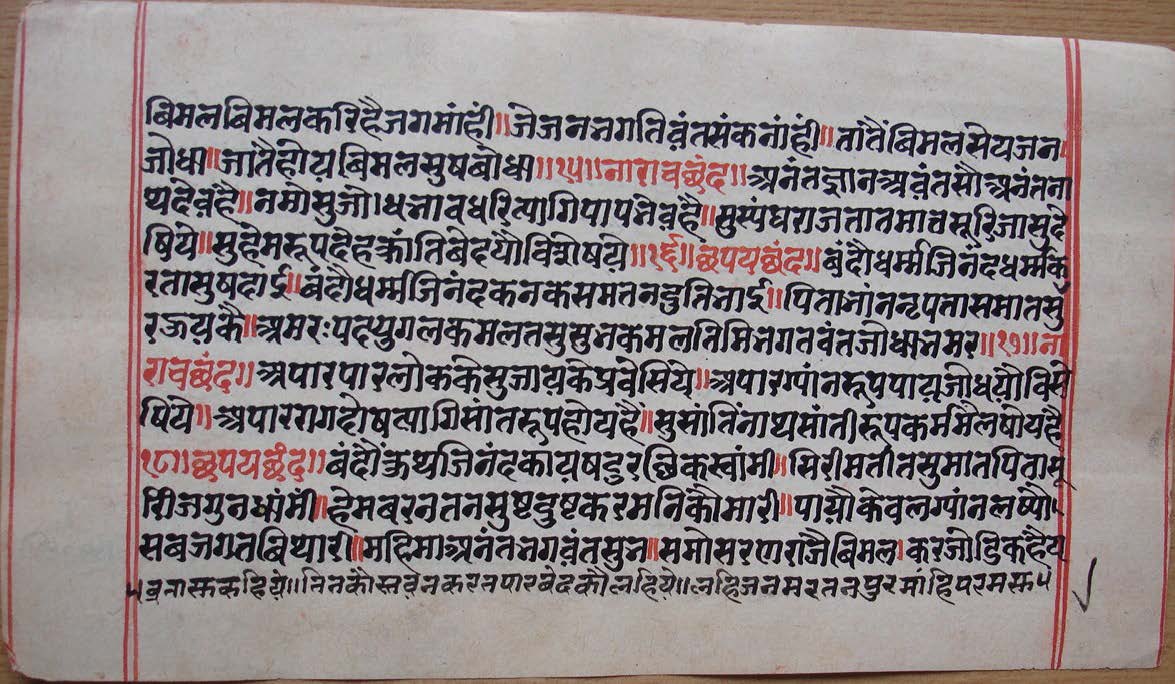 बिमलबिमलकरिहैजगमांहीं॥जेजनभगतिवंतसंकनांहीं॥तांतैंबिमलसेयजन
जोधा॥जातैहोयबिमलसुषबोधा॥१५॥नाराचछंद॥अनंतज्ञानअवंतसौअनंतना
थदेवहै॥नमोसुजोधभावधरित्यागिपापभेवहै॥सुस्यंघराजतातमातसूरिजासुदे
षिये॥सुहेमरूपदेहक्रांतिबेदयौविशेषये॥१६॥छपयछंद॥बंदौधर्म्मजिनंदधर्म्मक
रतासुषदाई॥बंदौधर्म्मजिनंदकनकसमतनदुतिताई॥पिताभांननृपतासमातसु
अमरःपदयुगलकमलतसुसुनकमलनिमिभगतवंतजोधाभमर॥१७॥ना
राचछंद॥अपारपारलोककेसुजायकेप्रवेसिये॥अपारग्यांनरूपपायजोधयौविसे
षिये॥अपाररागदोषत्यागिसांतरूपहोयहै॥सुसांतिंनाथसांतीरूपकर्ममैलषोयहै
१८॥छपयछंद॥बंदौंकुंथजिनंदकायषटुरछिकस्वांमी॥सिरीमतीतसुमातपितासू
रिजगुनधांमी॥हेमबरनतनसुष्टदुष्टकरमनिकौमारी॥पायौकेवलग्यांनलष्यो
सबजगतबिथारी॥महिमाअनंतभगवंतसुन॥समोसरणराजैबिमल।करजोडिकहैय
नितकौस्तवनकरनपारबेदकौलहिये॥लहिजनमरतनपुरमांहिपरम